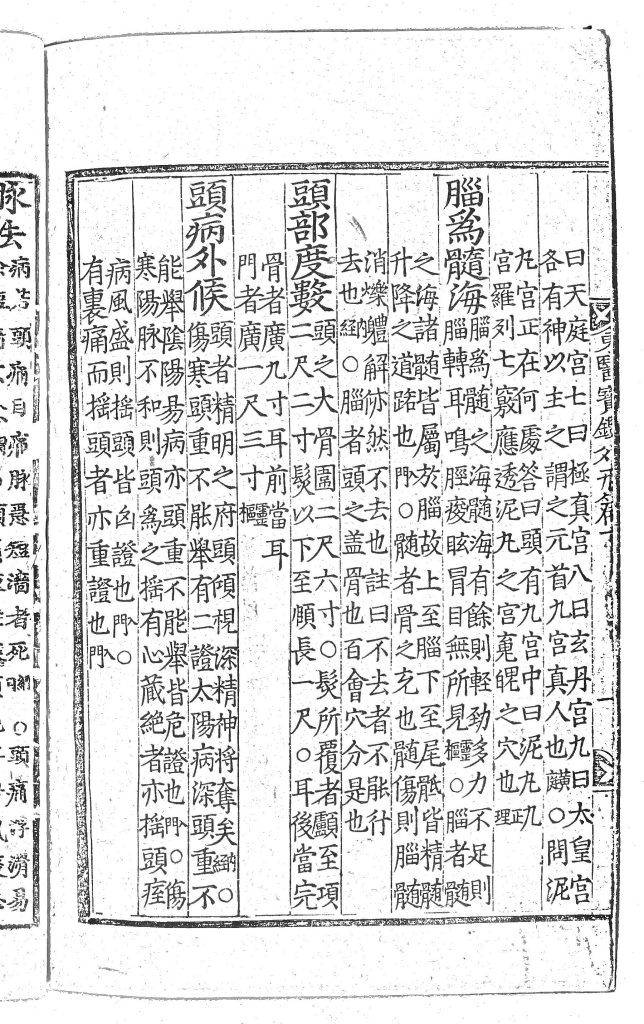 東醫寶鑑外形篇 一
曰天庭宮七曰極真宮八曰玄丹宮九曰太皇宮
各有神以主之謂之元首九宮真人也類○問泥
丸宮正在何處答曰頭有九宮中曰泥丸九
宮羅列七竅應透泥丸之宮䰟魄之穴也正理
腦爲髓海
腦爲髓之海髓海有餘則輕勁多力不足則
腦轉耳鳴脛痠眩冒目無所見靈樞○腦者髓
之海諸髓皆屬於腦故上至腦下至尾骶皆精髓
升降之道路也入門○髓者骨之充也髓傷則腦髓
消爍體解㑊然不去也註曰不去者不能行
去也內經○腦者頭之盖骨也百會穴分是也
頭部度數
頭之大骨圍二尺六寸○髮所覆者顱至項
二尺二寸髮以下至頤長一尺○耳後當完
骨者廣九寸耳前當耳
門者廣一尺三寸靈樞
頭病外候
頭者精明之府頭傾視深精神將奪矣內經○
傷寒頭重不能擧有二證太陽病深頭重不
能擧陰陽易病亦頭重不能擧皆危證也入門○傷
寒陽脉不和則頭爲之揺有心藏絶者亦揺頭痓
病風盛則揺頭皆凶證也入門○
有裏痛而揺頭者亦重證也入門
脉法
病苦頭痛目痛脉急短澁者死○頭痛浮滑易